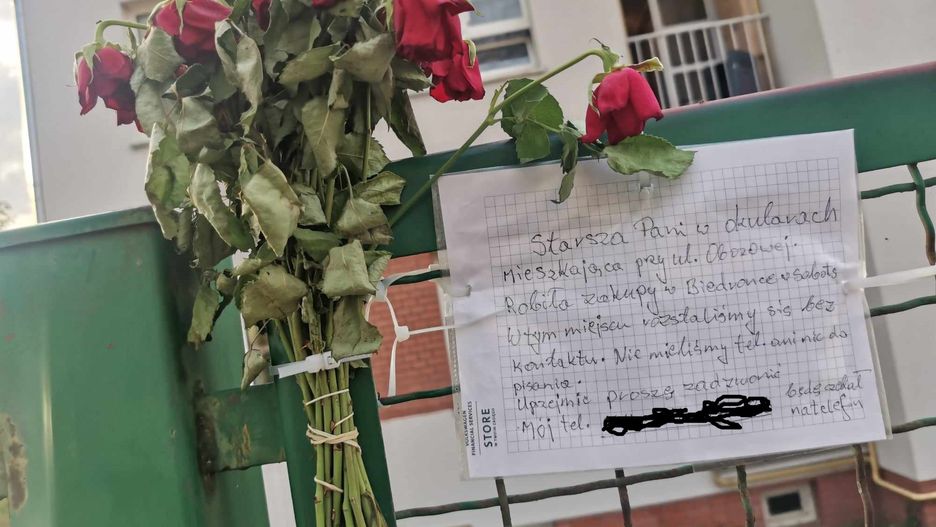 Starsza Pani w okularach
mieszkająca przy ul. Obozowej.
Robiła zakupy w Biedronce w sobotę
W tym miejscu rozstaliśmy się bez
kontaktu. Nie mieliśmy tel. ani nic do
pisania.
Uprzejmie proszę zadzwonić
Mój tel. będę czekał
na telefon
VOLKSWAGEN
FINANCIAL SERVICES
STORE